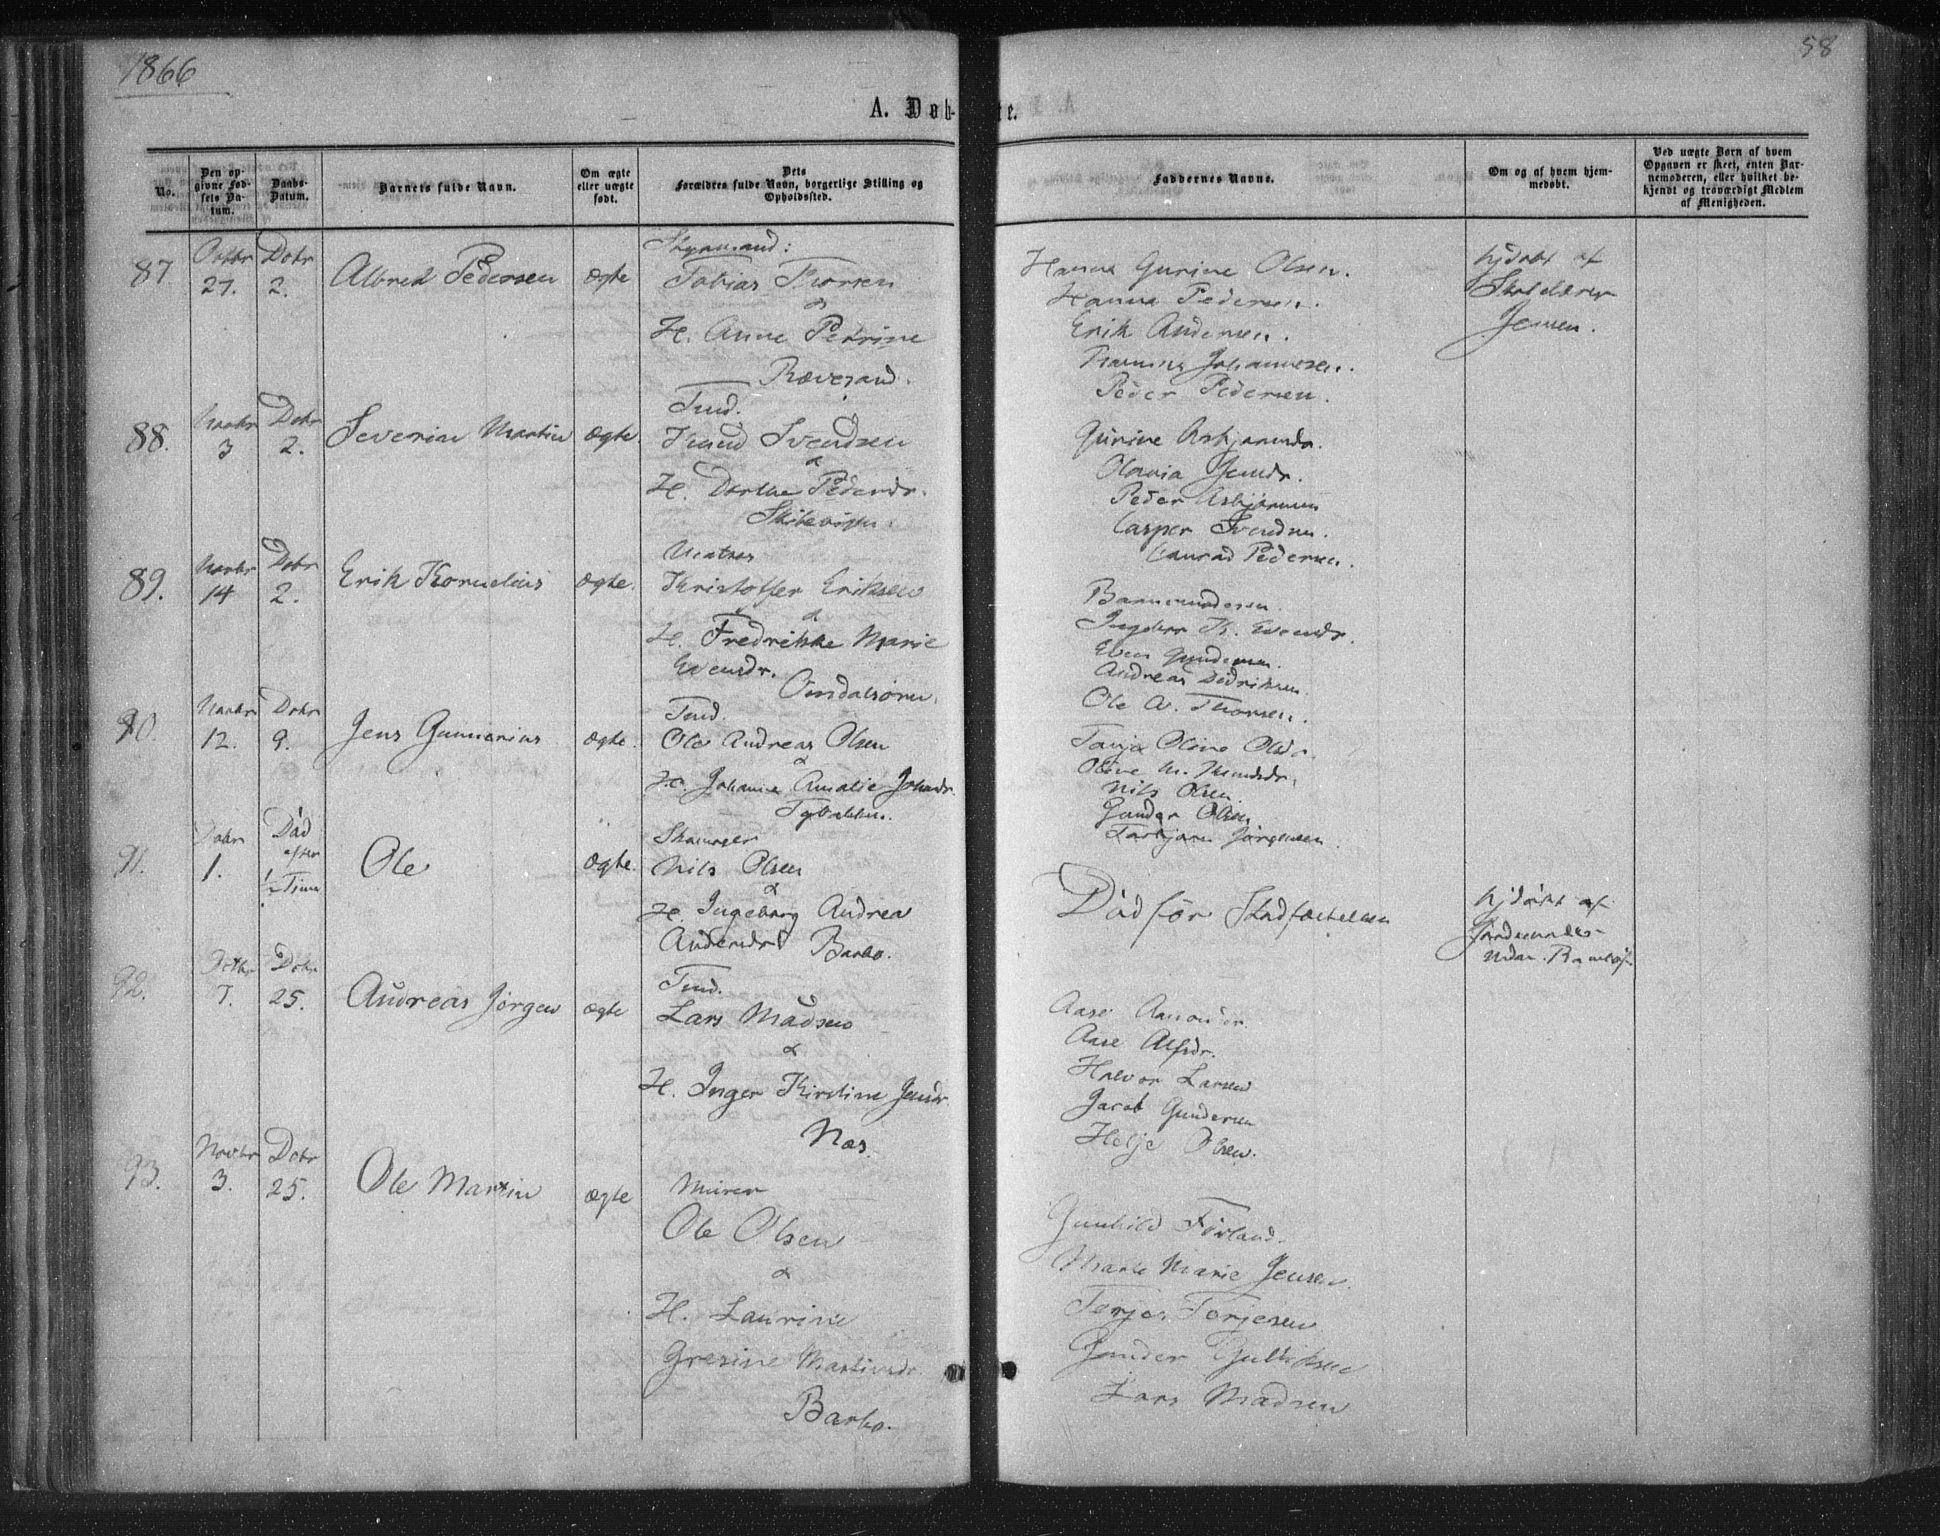 1866
58
A. Døb-
te.
No.
Den op-
givne Fød-
sels Da-
tum.
Daabs-
Datum.
Barnets fulde Navn.
Om ægte
eller uægte
født.
Dets
Forældres fulde Navn, borgerlige Stilling og
Opholdssted.
Faddernes Navne.
Om og af hvem hjem-
medøbt.
Ved uægte Børn af hvem
Opgaven er skeet, enten Bar-
nemoderen, eller hvilket be-
kjendt og troværdigt Medlem
af Menigheden.
87
Octbr
27.
Dcbr
2.
Alfred Pedersen
ægte
Styrmand:
Tobias Thorsen
&
H. Anne Petrine
Rævesand.
Hanna Gurine Olsen.
Hanna Pedersen.
Erik Andersen.
Johannesen.
Peder Pedersen.
hjdøbt af
Skolelærer
Jensen.
88.
Novbr
3
Dcbr
2.
Severin Martin
ægte
Tmd.
Knud Svendsen
&
H. Dorthe Pedersdr.
Gurine Asbjørnsdr.
Olavia Jensdr.
Peder Asbjørnsen
Casper Svendsen.
Conrad Pedersen.
89.
Novbr
14
Dcbr
2.
Erik Kornelius
ægte.
Matros
Kristoffer Eriksen
&
H. Fredrikke Marie
Evensdr.
Barnemoderen.
Ingebor K. Evensdr.
Even Gundersen.
Andreas Didriksen.
Ole A. Thorsen.
90.
Novbr
12.
Dcbr
9.
Jens Gunnerius
ægte.
Tmd.
Ole Andreas Olsen
&
H. Johanne Amalie Johnsdr.
Tybakken.
Tanja Oline Olsdr.
Oline M. Knudsdr.
Nils Olsen
Gunder Olsen
Torbjørn Jørgensen
91.
Dcbr
1.
Død
efter
½ Time
Ole
ægte.
Nils Olsen
&
H. Ingeborg Andrea
Andersdr. Barbo.
Død før Stadfæstelsen
hjdøbt af
Jordemoder
92.
Octbr
7.
Dcbr
25.
Andreas Jørgen
ægte
Tmd.
Lars Madsen
&
H. Inger Kirstine Jensdr
Næs.
Aase Aanonsdr.
Aase Alfsdr.
Halvor Larsen
Jacob Gundersen
Helje Olsen.
93.
Novbr
3.
Dcbr
25.
Ole Martin
ægte
Murer
Ole Olsen
&
H. Laurine
Gresine Martinsdr.
Barbo.
Gunhild Førland.
Marte Marie Jensen.
Terjes Terjesen
Gunder Gulliksen
Lars Madsen